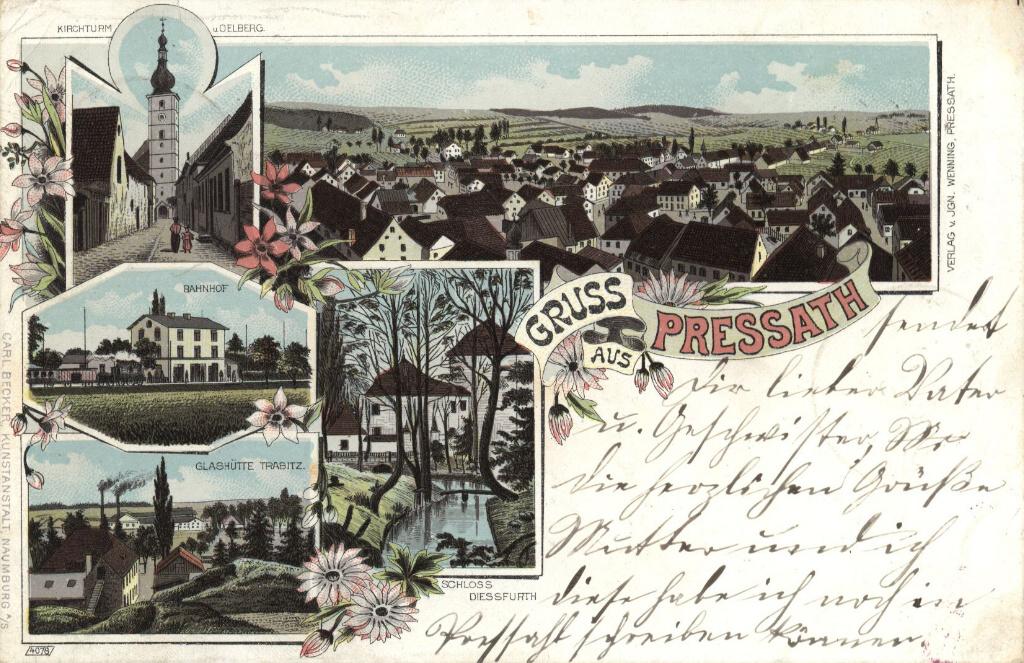 KIRCHTURM u. OELBERG.
BAHNHOF
GLASHÜTTE TRABITZ.
SCHLOSS
DIESSFURTH
GRUSS
AUS
PRESSATH
VERLAG v. JGN. WENNING, PRESSATH.
CARL BECKER, KUNSTANSTALT, NAUMBURG A/S
4078
sendet
Dir lieber Vater
u. Geschwister,
die herzlichen Grüße
Mutter und ich
diese habe ich noch in
Pressath schreiben können.